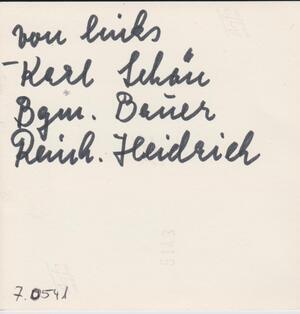 von links
- Karl Schön
Bgm. Bauer
Reinh. Heidrich
7.0541